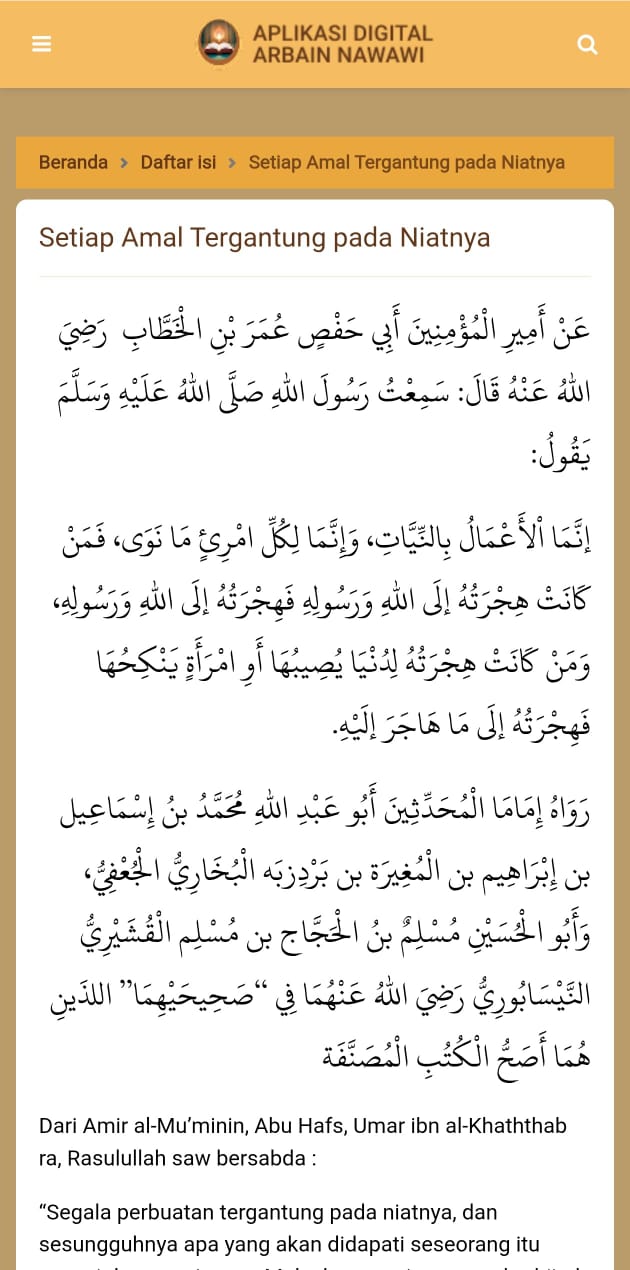 APLIKASI DIGITAL
ARBAIN NAWAWI
Beranda > Daftar isi > Setiap Amal Tergantung pada Niatnya
Setiap Amal Tergantung pada Niatnya
عَنْ أَمِيرِ الْمُؤْمِنِينَ أَبِي حَفْصٍ عُمَرَ بْنِ الْخَطَّابِ رَضِيَ
اللهُ عَنْهُ قَالَ: سَمِعْتُ رَسُولَ اللهِ صَلَّى اللهُ عَلَيْهِ وَسَلَّمَ
يَقُولُ:
إنَّمَا الْأَعْمَالُ بِالنِّيَّاتِ، وَإِنَّمَا لِكُلِّ امْرِئٍ مَا نَوَى، فَمَنْ
كَانَتْ هِجْرَتُهُ إلَى اللهِ وَرَسُولِهِ فَهِجْرَتُهُ إلَى اللهِ وَرَسُولِهِ،
وَمَنْ كَانَتْ هِجْرَتُهُ لِدُنْيَا يُصِيبُهَا أَو امْرَأَةٍ يَنْكِحُهَا
فَهِجْرَتُهُ إلَى مَا هَاجَرَ إلَيْهِ.
رَوَاهُ إِمَامَا الْمُحَدِّثِينَ أَبُو عَبْدِ اللهِ مُحَمَّدُ بنُ إِسْمَاعِيل
بن إِبْرَاهِيم بن الْمُغِيرَة بن بَرْدِزبَه الْبُخَارِيُّ الْجُعْفِيُّ،
وَأَبُو الْحُسَيْنِ مُسْلِمٌ بنُ الْحَجَّاج بن مُسْلِم الْقُشَيْرِيُّ
النَّيْسَابُورِيُّ رَضِيَ اللهُ عَنْهُمَا فِي “صَحِيحَيْهِمَا” اللذَينِ
هُمَا أَصَحُّ الْكُتُبِ الْمُصَنَّفَة
Dari Amir al-Mu’minin, Abu Hafs, Umar ibn al-Khaththab
ra, Rasulullah saw bersabda :
“Segala perbuatan tergantung pada niatnya, dan
sesungguhnya apa yang akan didapati seseorang itu